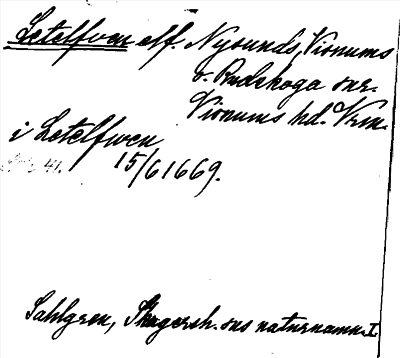 Letelfven elf. Nysunds, Visnums
o. Rudskoga snr.
Visnums hd. Vrm.
i Letelfwen
15/6 1669.
Sahlgren, Skagersh. sns naturnamn I.